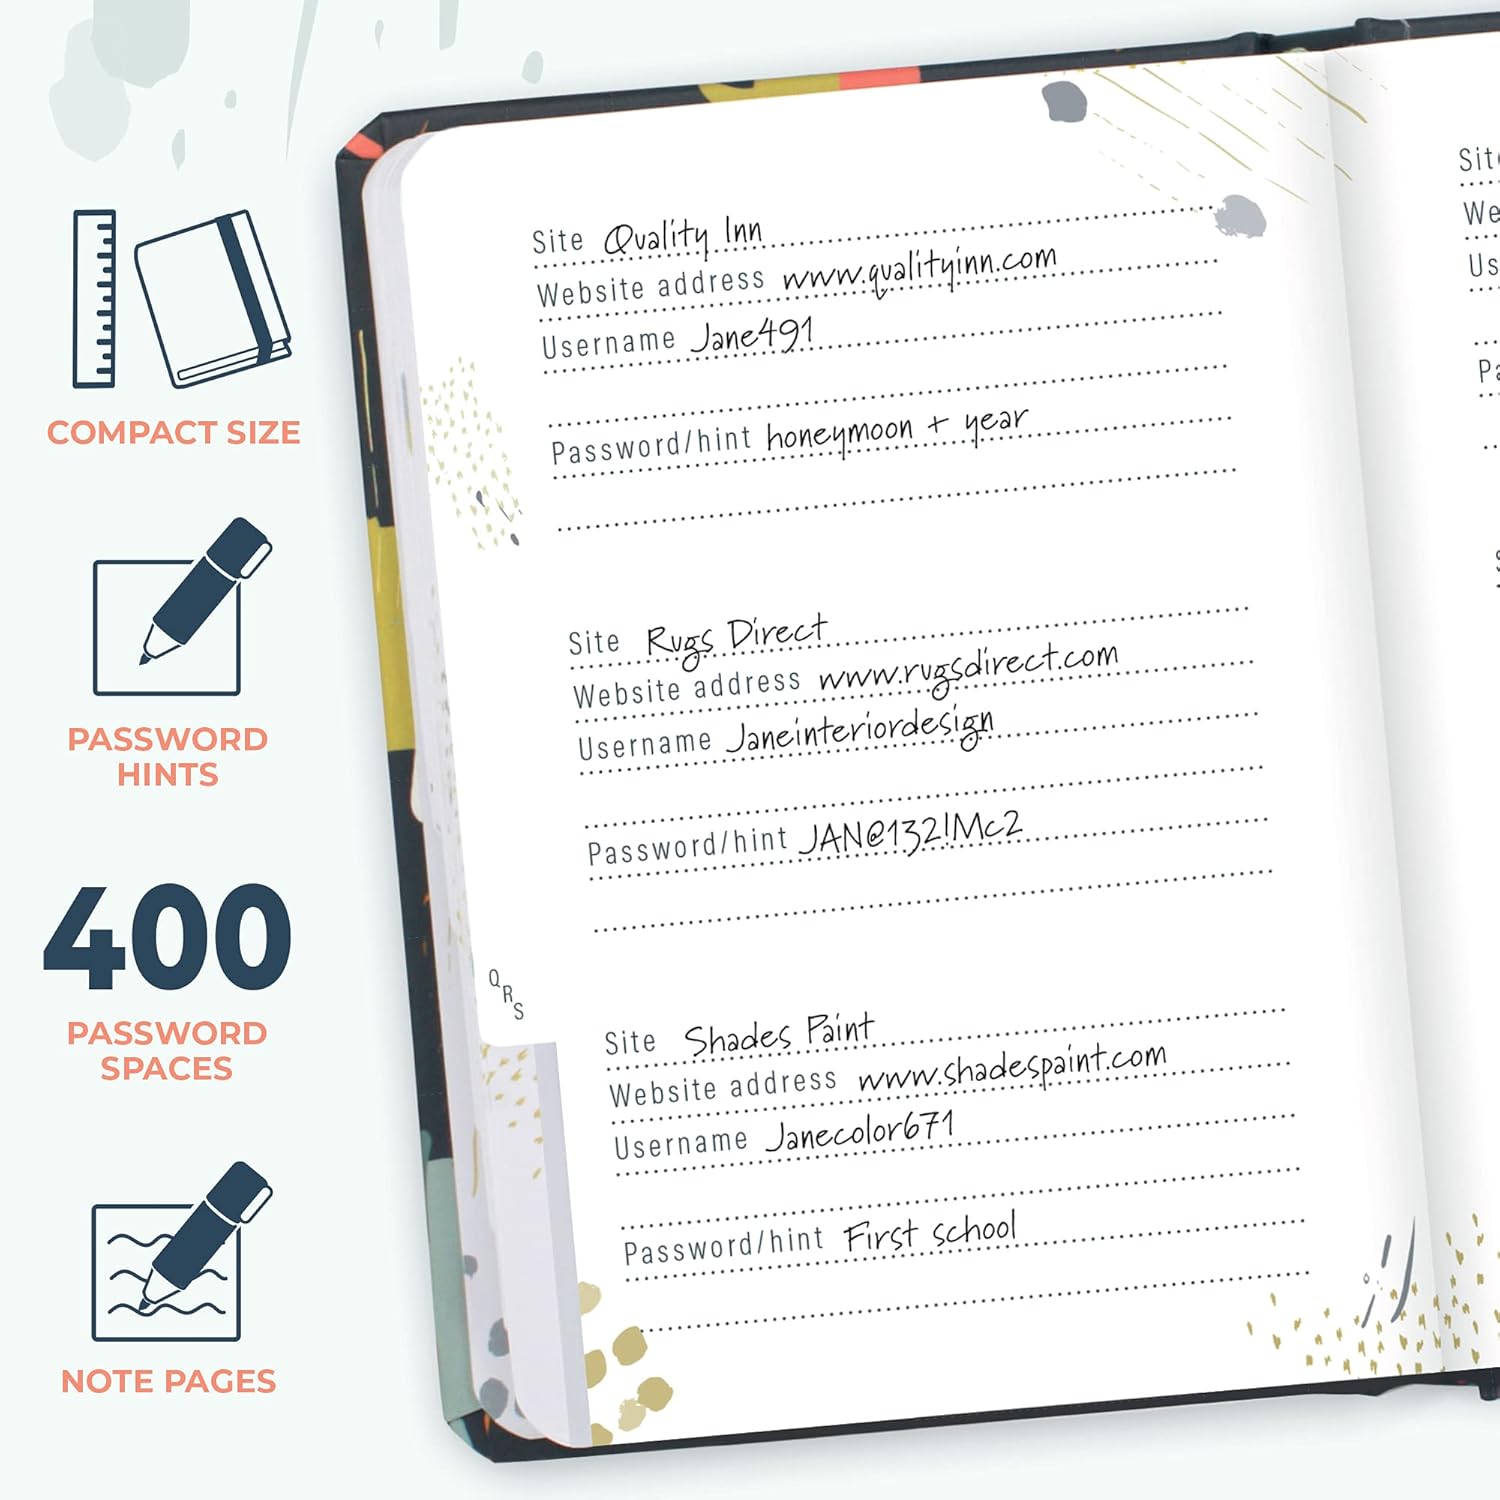 COMPACT SIZE
PASSWORD
HINTS
400
PASSWORD
SPACES
NOTE PAGES
Site Quality Inn
Website address www.qualityinn.com
Username Jane491
Password/hint honeymoon + year
Site Rugs Direct
Website address www.rugsdirect.com
Username Janeinteriordesign
Password/hint JAN@132!Mc2
QRS
Site Shades Paint
Website address www.shadespaint.com
Username Janecolor671
Password/hint First school